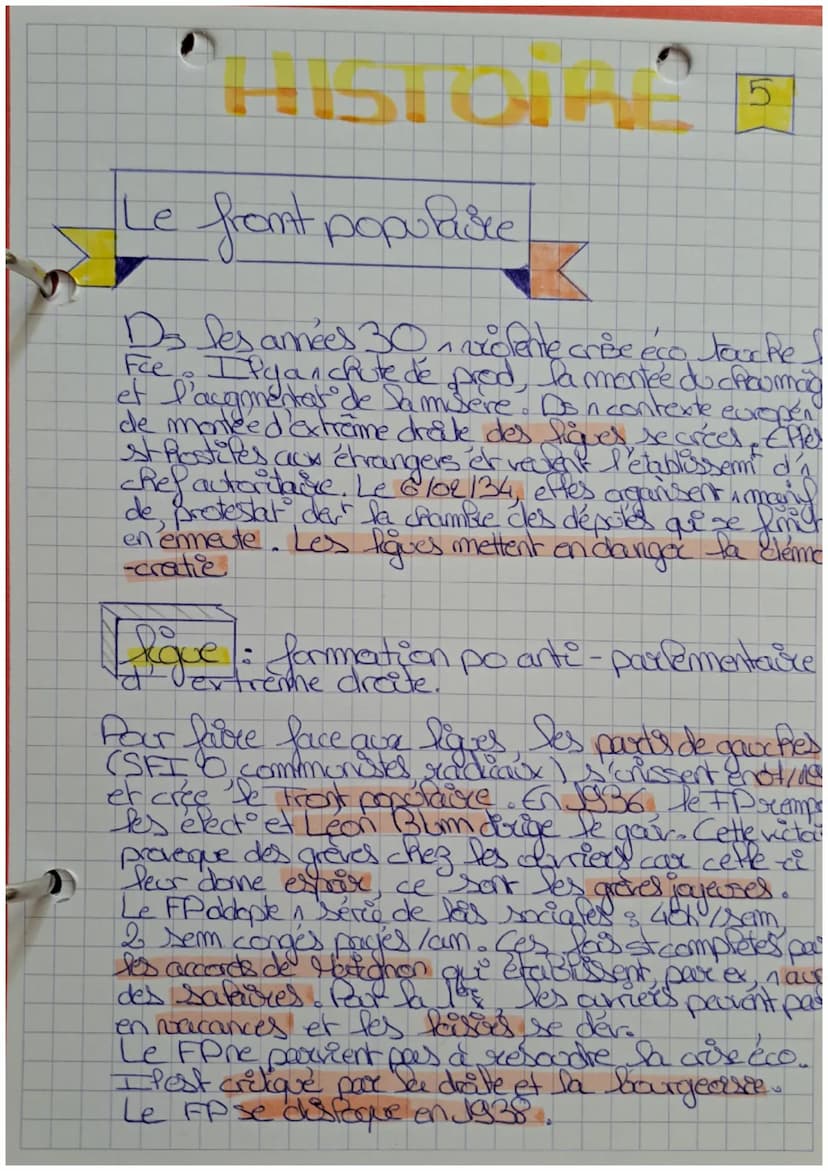 HISTOIRE
5
Le front populaire
Ds les années 30 1 violente crise éco touche
Fce. Il y a 1 chute de prod, la montée du chomag
et l'augmentat° de la misère. Ds 1 contexte européen
de montée d'extrême droite des ligues se crées. Elles
st hostiles aux étrangers et veulent l'établissemt d'1
chef autoritaire. Le 6/02/34, elles organisent 1 manif
de protestat° devt la chambre des députés qui se finit
en émmeute. Les ligues mettent en danger la démo
-cratie
ligue : formation po anti-parlementaire
d'extrême droite.
Pour faire face aux ligues, les partis de gauches
(SFIO, communistes, radicaux) s'unissent en
et crée le Front populaire. En 1936 le FP remp
les élect° et Léon Blum dirige le gouv. Cette victoi
provoque des grèves chez les ouvriers car celle-ci
leur donne espoir, ce sont les grèves joyeuses.
Le FP adopte 1 série de lois sociales : 40h/sem,
2 sem congés payés/an. Ces lois st complétés pa
les accords de Matignon qui établissent, par ex, 1 aug
des salaires. Par la 1re les ouvriers peuvent par
en vacances et les loisirs se dév.
Le FP ne parvient pas à résoudre la crise éco.
Il est critiqué par la droite et la bourgeoisie.
Le FP se disloque en 1938.